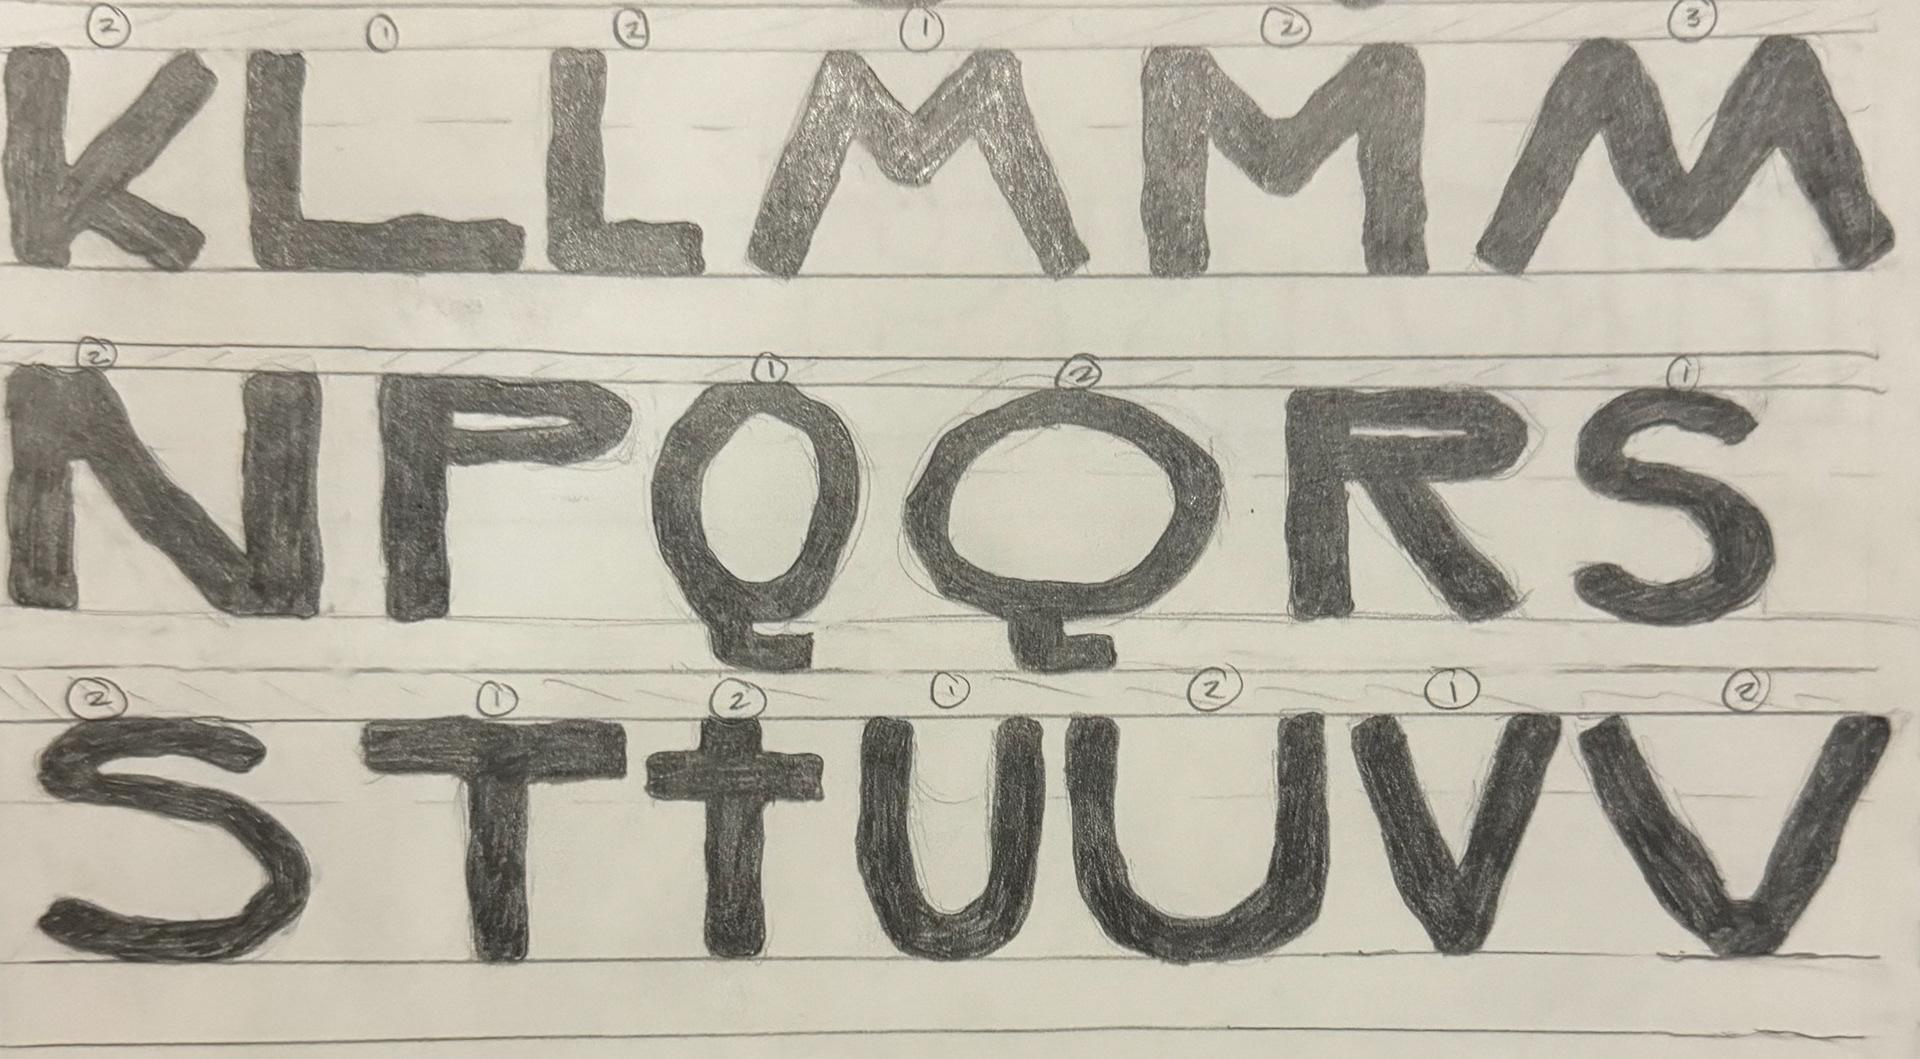 ② ① ② ① ② ③
K L L M M M
② ① ② ①
N P Q Q R S
② ① ② ① ② ① ②
S T t U U V V